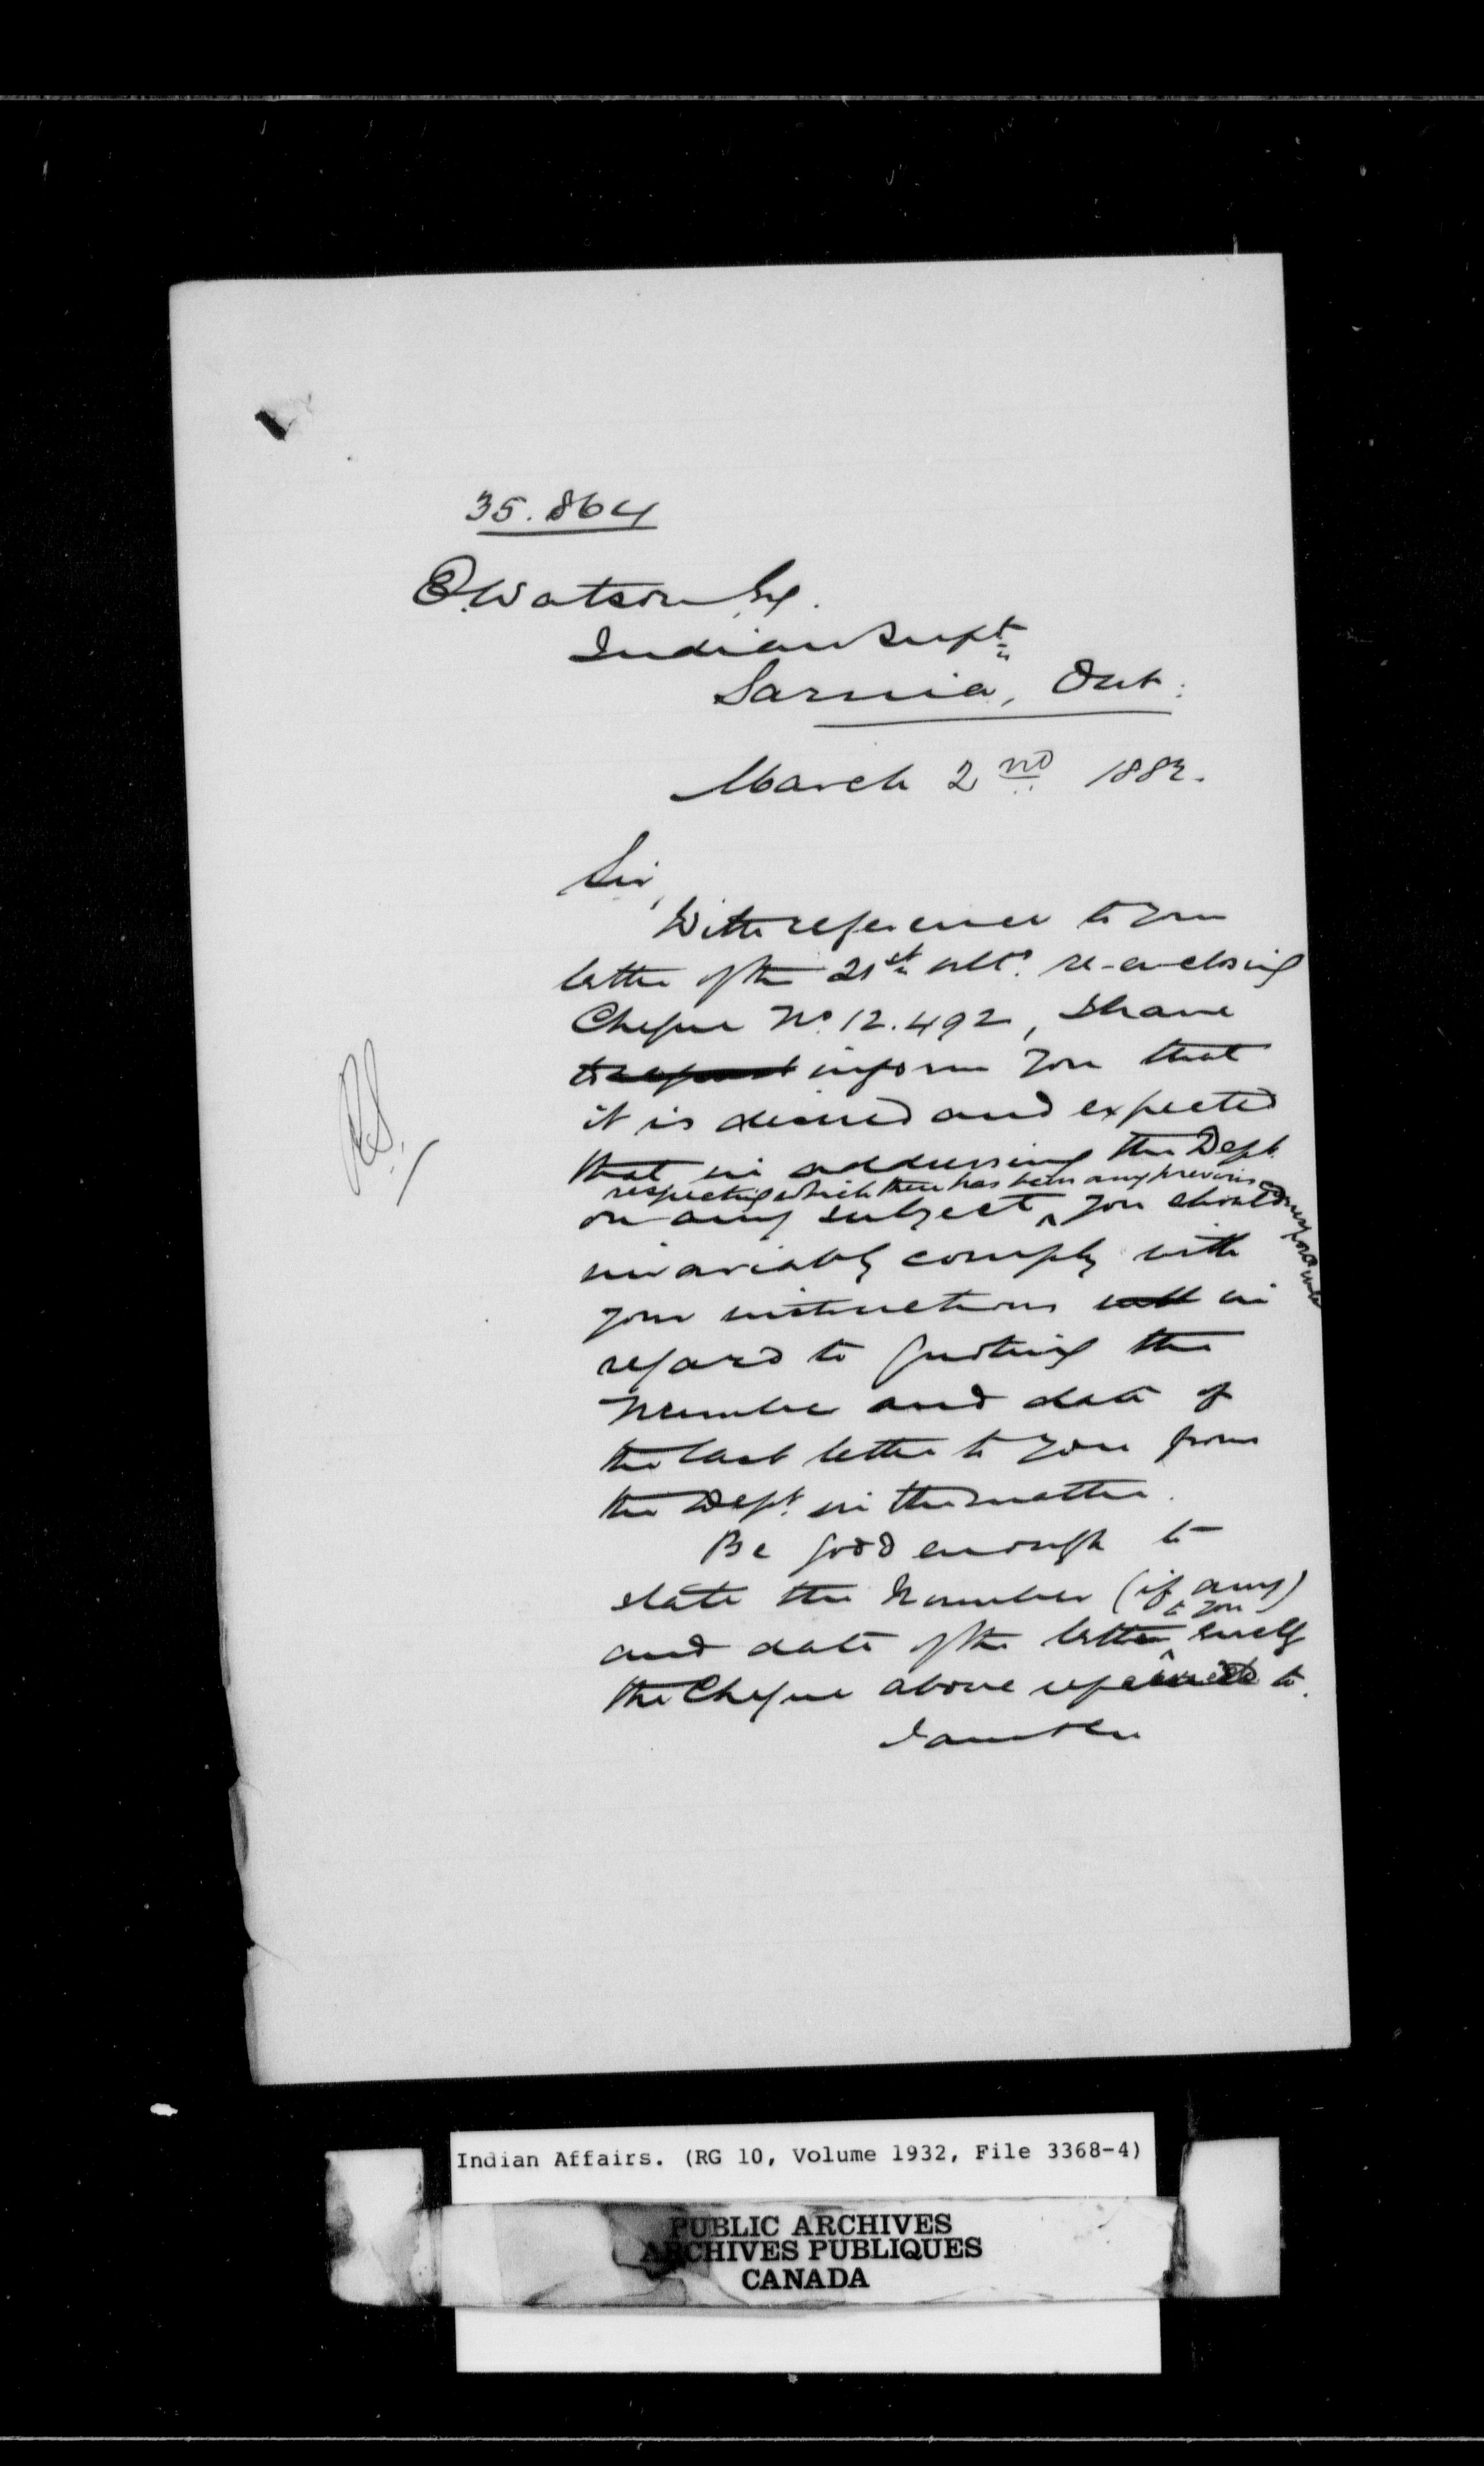 35.864
E. Watson Esq.
Indian Supt
Sarnia, Ont.
March 2nd 1882.
Sir,
With reference to your
letter of the 21st ulto. re-enclosing
Cheque No. 12.492, I have
to inform you that
it is desired and expected
that in addressing the Dept.
respecting which there has been any previous correspondence
on any subject ^ you should
invariably comply with
your instructions in
regard to quoting the
Number and date of
the last letter to you from
the Dept. in the matter.
Be good enough to
state the Number (if any)
to you
and date of the letter ^ encl'g
the Cheque above referred to.
I am &c
RS.
Indian Affairs. (RG 10, Volume 1932, File 3368-4)
PUBLIC ARCHIVES
ARCHIVES PUBLIQUES
CANADA